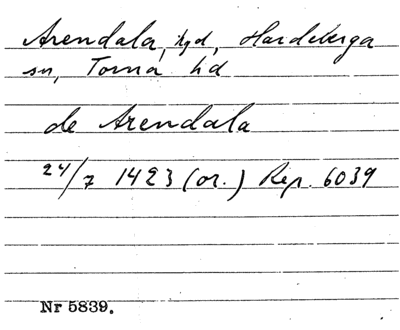 Arendala, kyd, Hardeberga
sn, Torna hd
de Arendala
24/7 1423 (or.) Rep. 6039
Nr 5839.